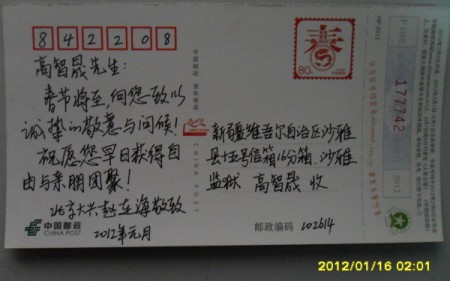 842208
高智晟先生：
春节将至，向您致以
诚挚的敬意与问候！
祝愿您早日获得自
由与亲朋团聚！
北京大兴赵连海敬致
2012年元月
中国邮政
CHINA POST
春
80分
中国邮政 贺年有奖
CHINA POST
新疆维吾尔自治区沙雅
县十五号信箱16分箱 沙雅
监狱 高智晟 收
邮政编码 102614
HP 2012
177742
2012
2012/01/16 02:01